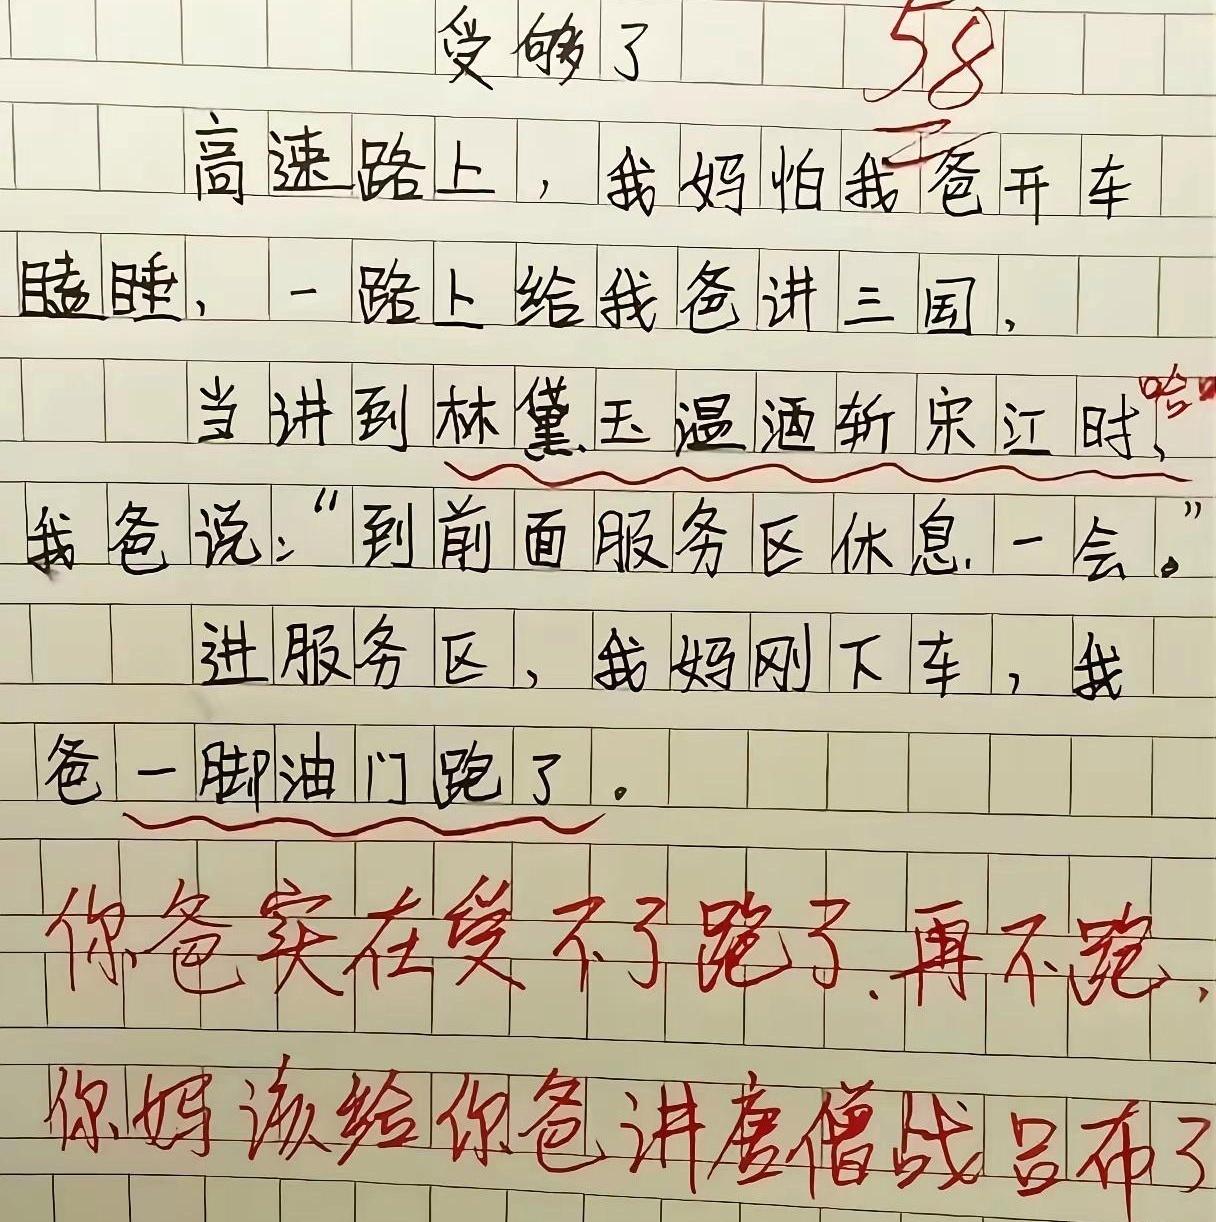 受够了 58
高速路上，我妈怕我爸开车
瞌睡，一路上给我爸讲三国，
哈
当讲到林黛玉温酒斩宋江时，
我爸说：“到前面服务区休息一会。”
进服务区，我妈刚下车，我
爸一脚油门跑了。
你爸实在受不了跑了.再不跑，
你妈该给你爸讲唐僧战吕布了